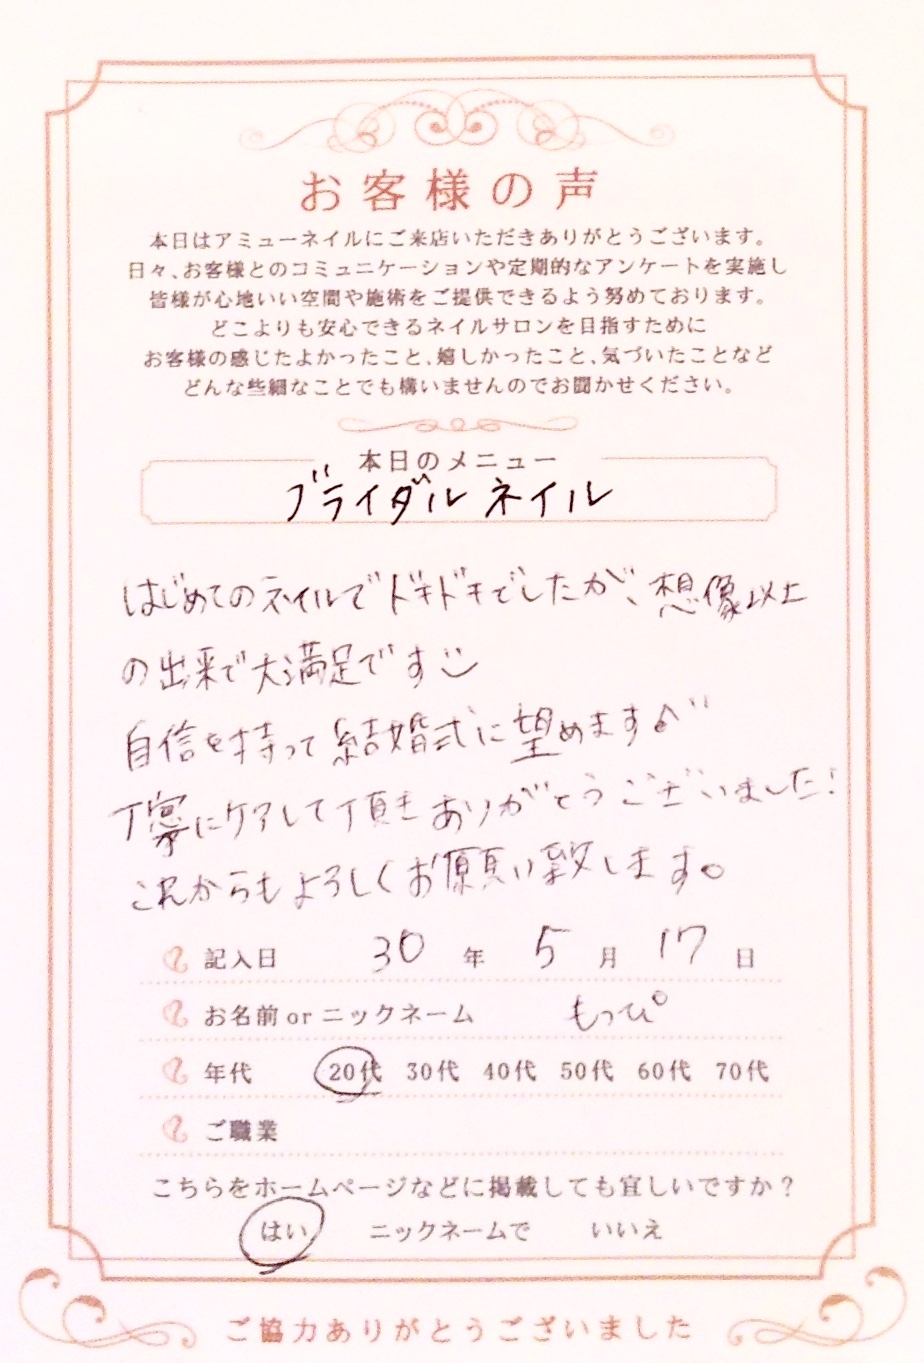 お客様の声
本日はアミューネイルにご来店いただきありがとうございます。
日々、お客様とのコミュニケーションや定期的なアンケートを実施し
皆様が心地いい空間や施術をご提供できるよう努めております。
どこよりも安心できるネイルサロンを目指すために
お客様の感じたよかったこと、嬉しかったこと、気づいたことなど
どんな些細なことでも構いませんのでお聞かせください。
本日のメニュー
ブライダルネイル
はじめてのネイルでドキドキでしたが、想像以上
の出来で大満足です
自信を持って結婚式に望めます♪
丁寧にケアして頂きありがとうございました!
これからもよろしくお願い致します。
記入日 30年 5月 17日
お名前orニックネーム もっぴ
年代 20代 30代 40代 50代 60代 70代
ご職業
こちらをホームページなどに掲載しても宜しいですか?
はい ニックネームで いいえ
ご協力ありがとうございました